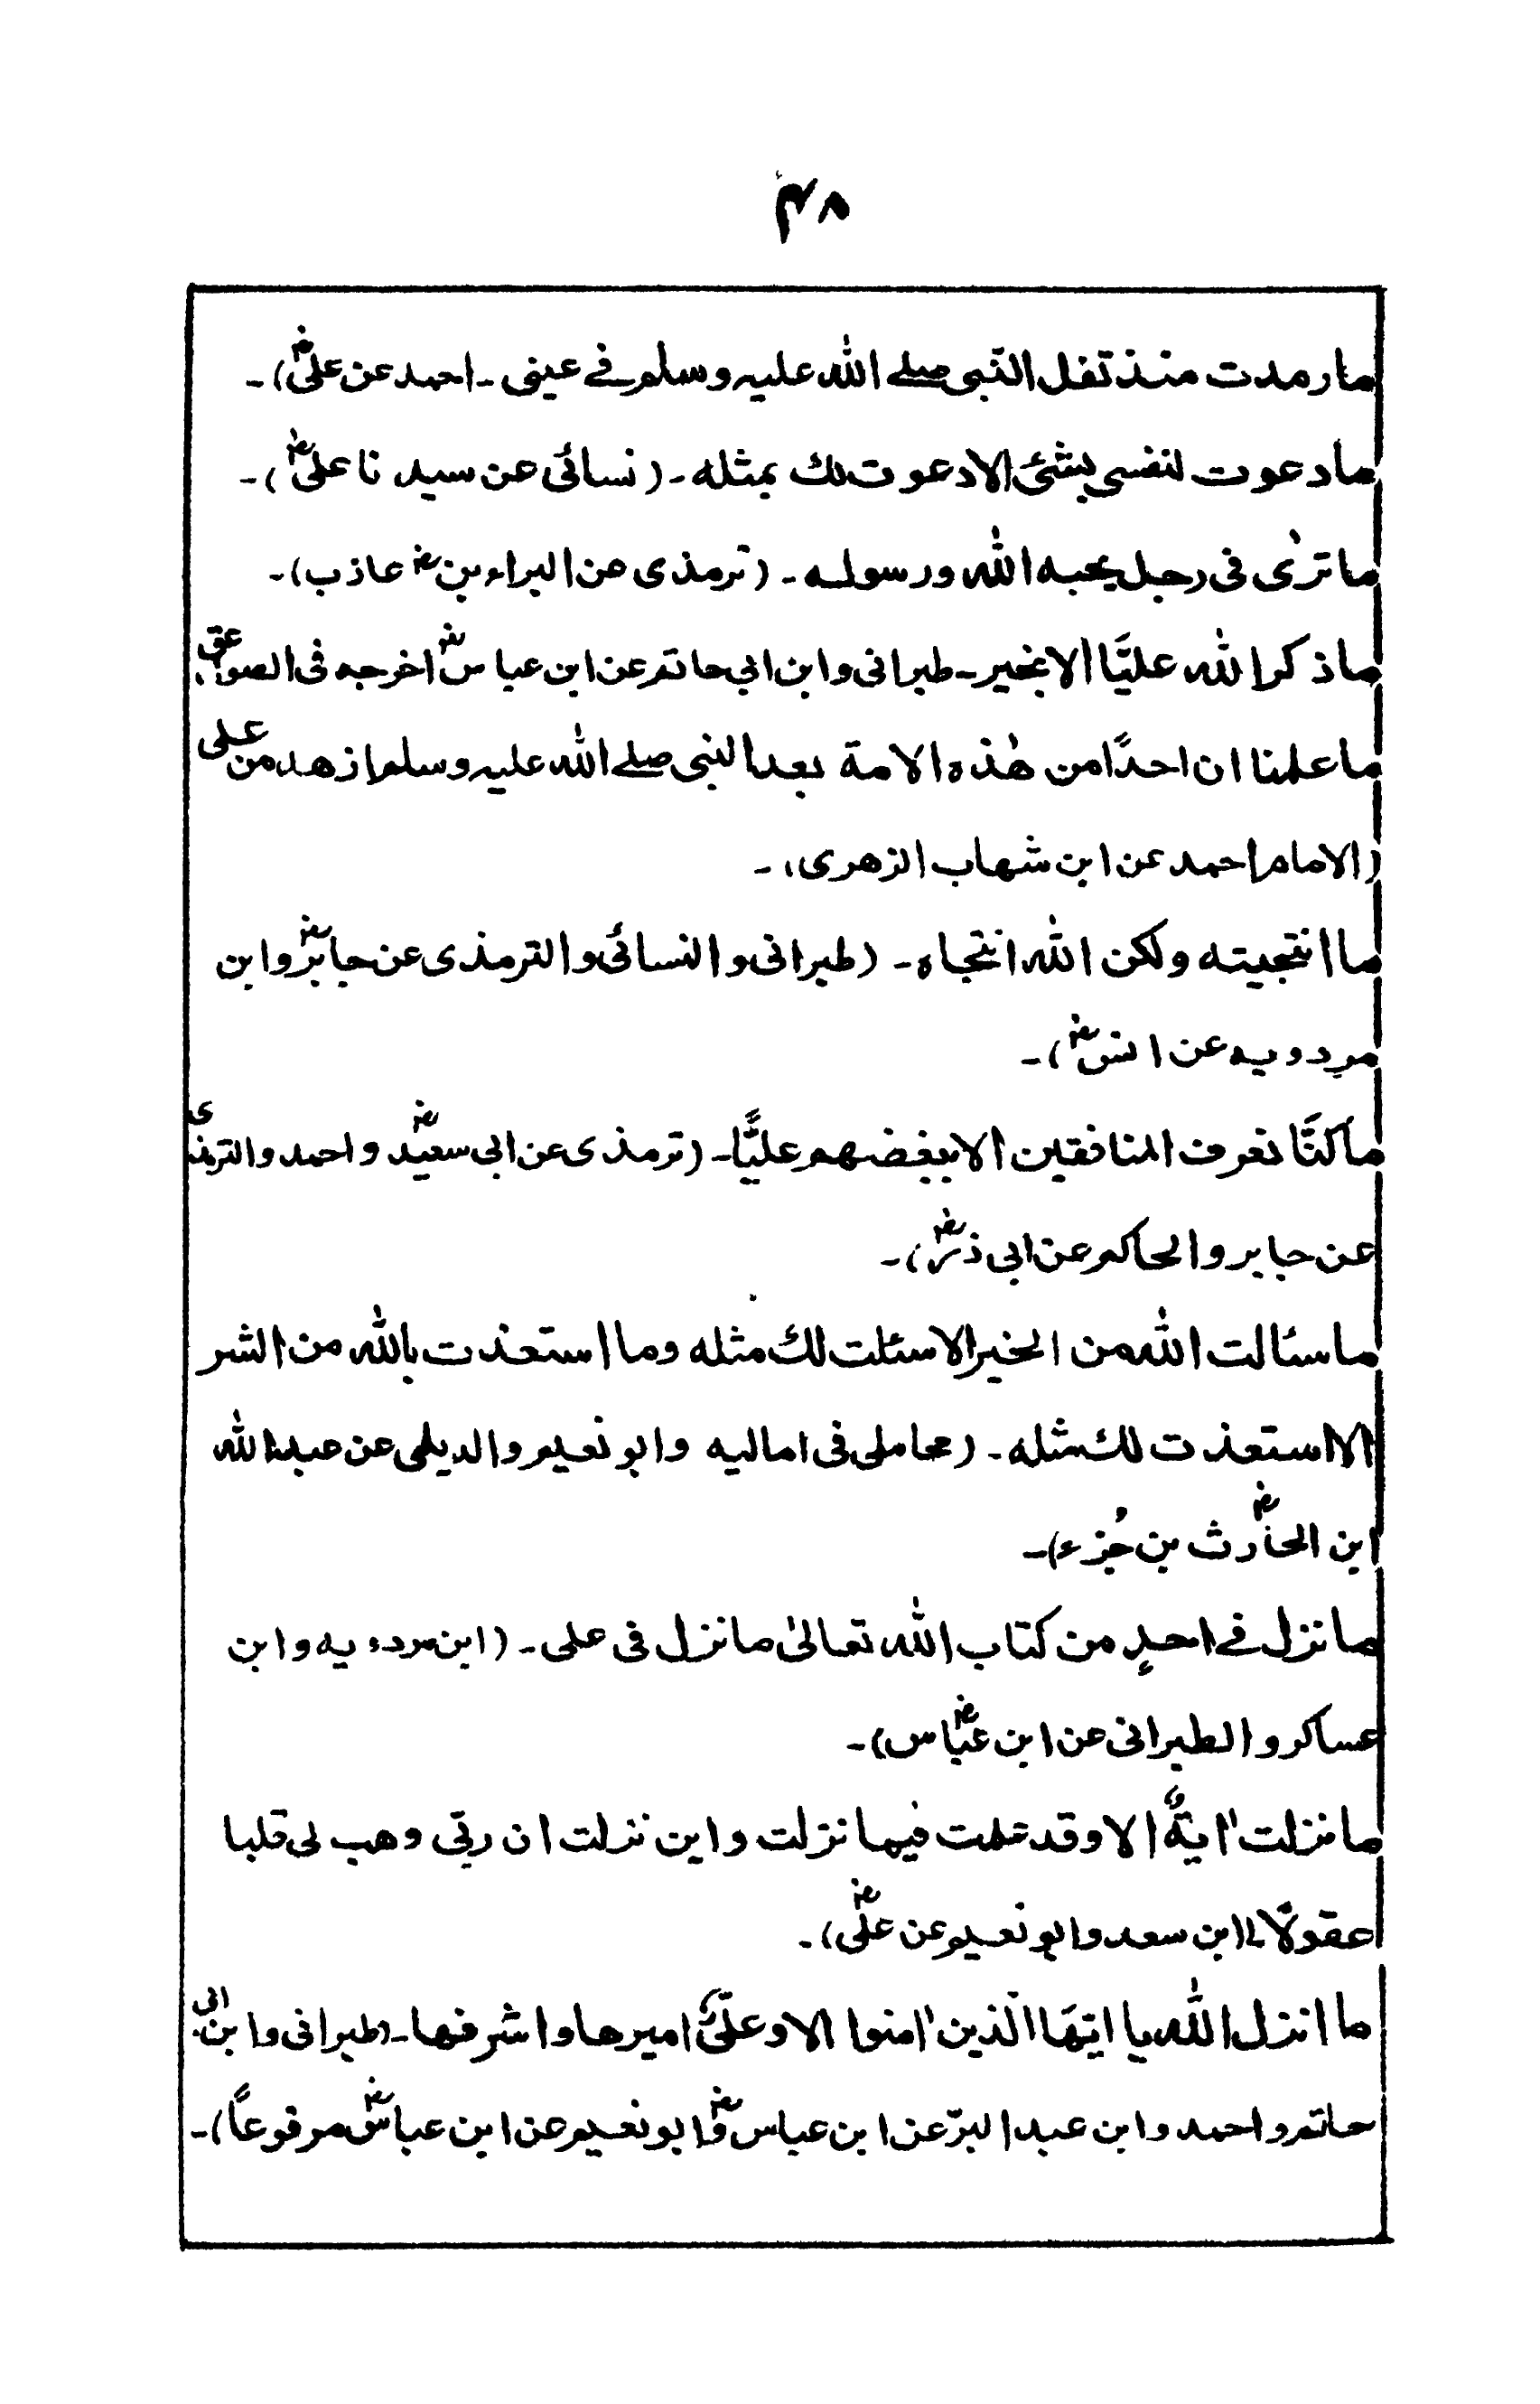 ۴۸
ما رمدت منذ تفل النّبی صلے اللّٰه علیه وسلم فے عینی ـ احمد عن علیؓ) ـ
ما دعوت لنفسی بشئ الا دعوت لك بمثله ـ (نسائی عن سیدنا علیؓ) ـ
ما ترٰی فی رجل یحبه اللّٰه ورسوله ـ (ترمذی عن البراء بنؓ عازب) ـ
ما ذکر اللّٰه علیًّا الا بخیر ـ طبرانی وابن ابی حاتم عن ابن عباسؓ اخرجه فی الصواعق
ما علمنا ان احدًا من هٰذه الامة بعد النبی صلے اللّٰه علیه وسلم ازهد من علی
(الامام احمد عن ابن شهاب الزهری) ـ
ما انتجیته ولکن اللّٰه انتجاه ـ (طبرانی والنسائی والترمذی عن جابرؓ وابن
مردویه عن انسؓ) ـ
ما کنّا نعرف المنافقین الا ببغضهم علیًّا ـ (ترمذی عن ابی سعیدؓ واحمد والترمذی
عن جابر والحاکم عن ابی ذرؓ) ـ
ما سئالت اللّٰه من الخیر الا سئلت لك مثله وما استعذت باللّٰه من الشر
الا استعذت لك مثله ـ (محاملی فی امالیه وابو نعیم والدیلمی عن عبد اللّٰه
ابن الحارثؓ بن جُزء) ـ
ما نزل فے احدٍ من کتاب اللّٰه تعالیٰ ما نزل فی علی ـ (ابن مردویه وابن
عساکر والطبرانی عن ابن عبّاسؓ) ـ
ما نزلت اٰیةٌ الا وقد علمت فیما نزلت واین نزلت ان ربّی وهب لی قلبا
عقولًا (ابن سعد وابو نعیم عن علیؓ) ـ
ما انزل اللّٰه یا ایّها الّذین اٰمنوا الا وعلیٌّ امیرها واشرفها ـ (طبرانی وابن ابی
حاتم واحمد وابن عبد البرّ عن ابن عباسؓ وابو نعیم عن ابن عباسؓ مرفوعًا) ـ